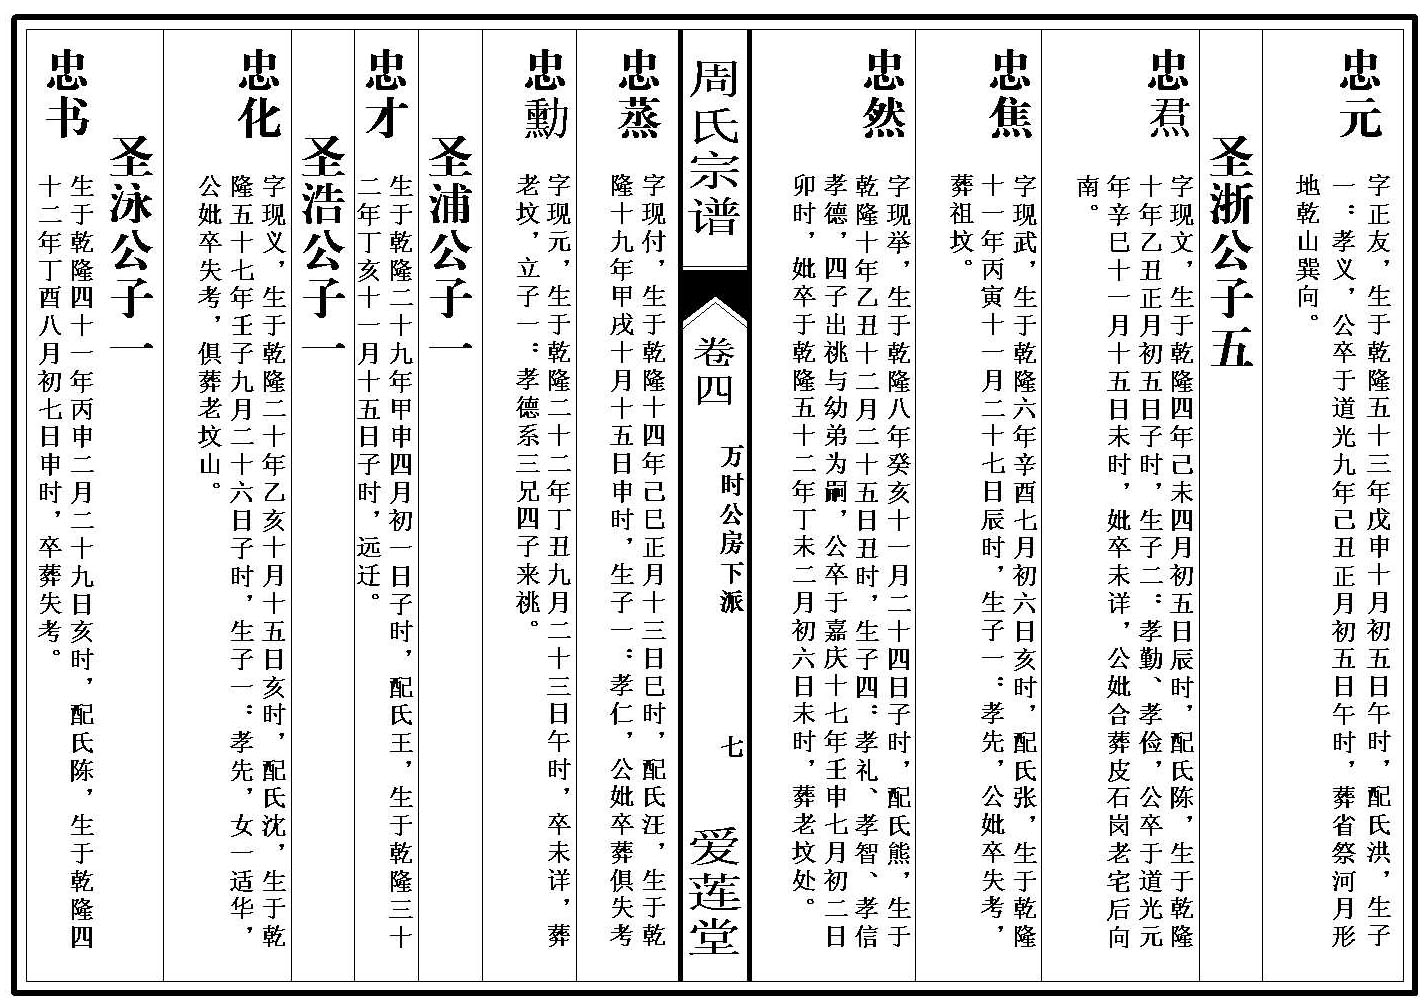 忠元
字正友，生于乾隆五十三年戊申十月初五日午时，配氏洪，生子
一：孝义，公卒于道光九年己丑正月初五日午时，葬省祭河月形
地乾山巽向。
圣浙公子五
忠焄
字现文，生于乾隆四年己未四月初五日辰时，配氏陈，生于乾隆
十年乙丑正月初五日子时，生子二：孝勤、孝俭，公卒于道光元
年辛巳十一月十五日未时，妣卒未详，公妣合葬皮石岗老宅后向
南。
忠焦
字现武，生于乾隆六年辛酉七月初六日亥时，配氏张，生于乾隆
十一年丙寅十一月二十七日辰时，生子一：孝先，公妣卒失考，
葬祖坟。
忠然
字现举，生于乾隆八年癸亥十一月二十四日子时，配氏熊，生于
乾隆十年乙丑十二月二十五日丑时，生子四：孝礼、孝智、孝信
孝德，四子出祧与幼弟为嗣，公卒于嘉庆十七年壬申七月初二日
卯时，妣卒于乾隆五十二年丁未二月初六日未时，葬老坟处。
周氏宗谱
卷四
万时公房下派
七
爱莲堂
忠蒸
字现付，生于乾隆十四年己巳正月十三日巳时，配氏汪，生于乾
隆十九年甲戌十月十五日申时，生子一：孝仁，公妣卒葬俱失考
忠勳
字现元，生于乾隆二十二年丁丑九月二十三日午时，卒未详，葬
老坟，立子一：孝德系三兄四子来祧。
圣浦公子一
忠才
生于乾隆二十九年甲申四月初一日子时，配氏王，生于乾隆三十
二年丁亥十一月十五日子时，远迁。
圣浩公子一
忠化
字现义，生于乾隆二十年乙亥十月十五日亥时，配氏沈，生于乾
隆五十七年壬子九月二十六日子时，生子一：孝先，女一适华，
公妣卒失考，俱葬老坟山。
圣泳公子一
忠书
生于乾隆四十一年丙申二月二十九日亥时，配氏陈，生于乾隆四
十二年丁酉八月初七日申时，卒葬失考。